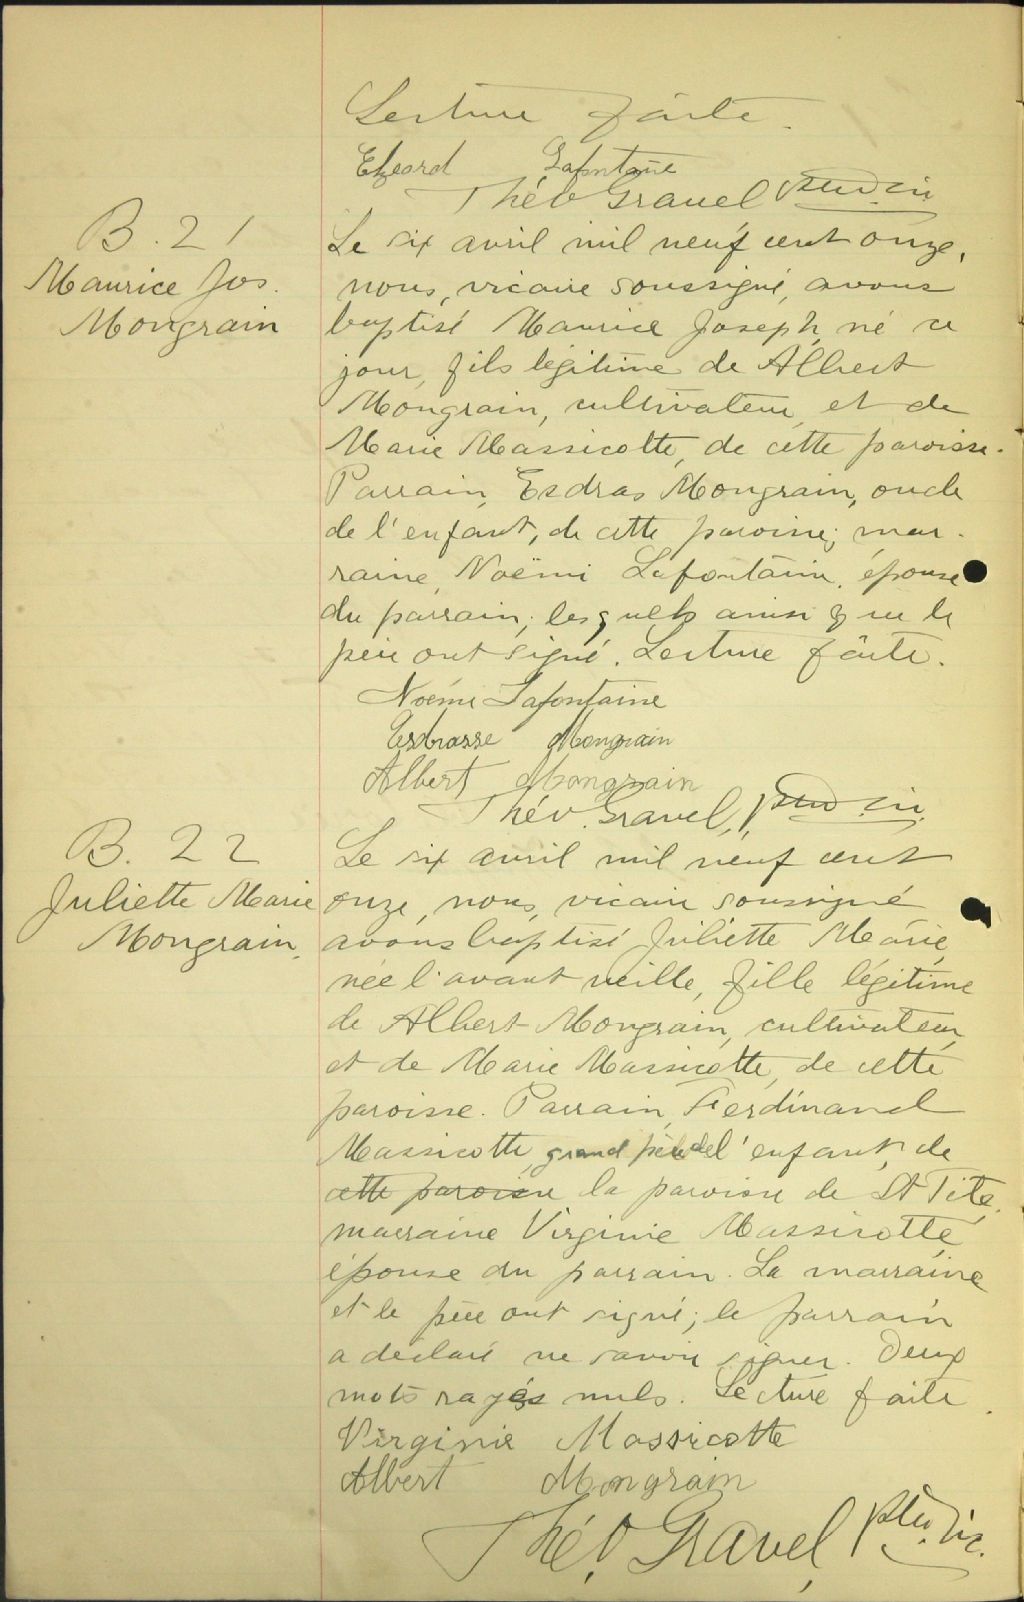 Lecture faite.
Elzéard Lafontaine
Théo Gravel ptre vic
B. 21
Maurice Jos.
Mongrain
Le six avril mil neuf cent onze,
nous, vicaire soussigné, avons
baptisé Maurice Joseph, né ce
jour, fils légitime de Albert
Mongrain, cultivateur, et de
Marie Massicotte, de cette paroisse.
Parrain, Esdras Mongrain, oncle
de l'enfant, de cette paroisse; mar-
raine, Noëmi Lafontaine, épouse
du parrain; lesquels ainsi que le
père ont signé. Lecture faite.
Noémi Lafontaine
Esdrasse Mongrain
Albert Mongrain
Théo. Gravel, ptre vic.
B. 22
Juliette Marie
Mongrain,
Le six avril mil neuf cent
onze, nous, vicaire soussigné
avons baptisé Juliette Marie,
née l'avant veille, fille légitime
de Albert Mongrain, cultivateur,
et de Marie Massicotte, de cette
paroisse. Parrain, Ferdinand
Massicotte, grand père de l'enfant, de
cette paroisse la paroisse de St Tite,
marraine Virginie Massicotte,
épouse du parrain. La marraine
et le père ont signé; le parrain
a déclaré ne savoir signer. Deux
mots rayés nuls. Lecture faite.
Virginie Massicotte
Albert Mongrain
Théo. Gravel, ptre. vic.